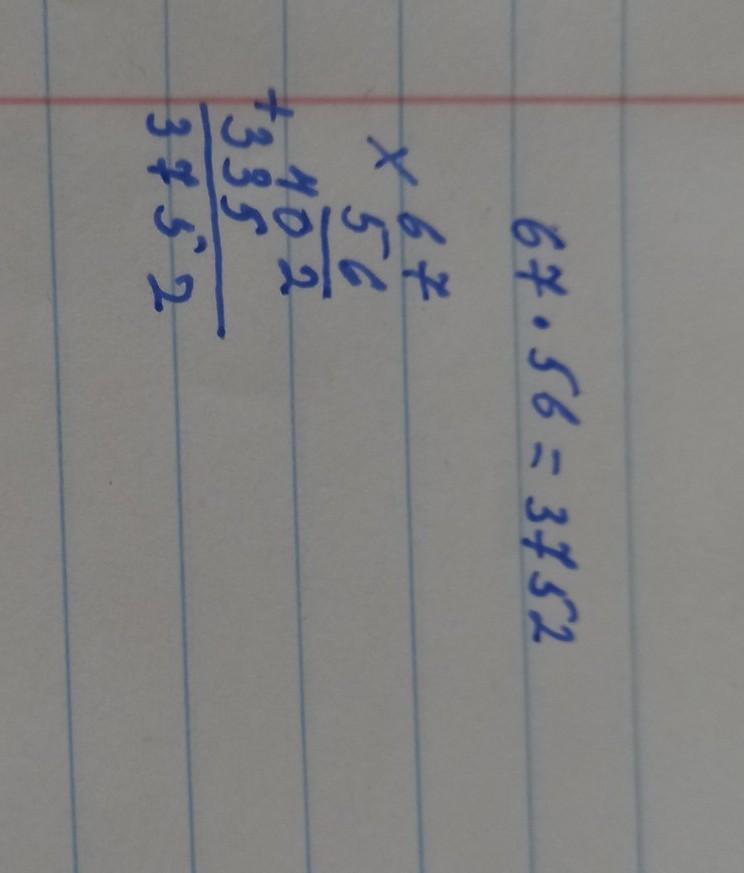 67 · 56 = 3752
× 67
56
402
+ 335
3752